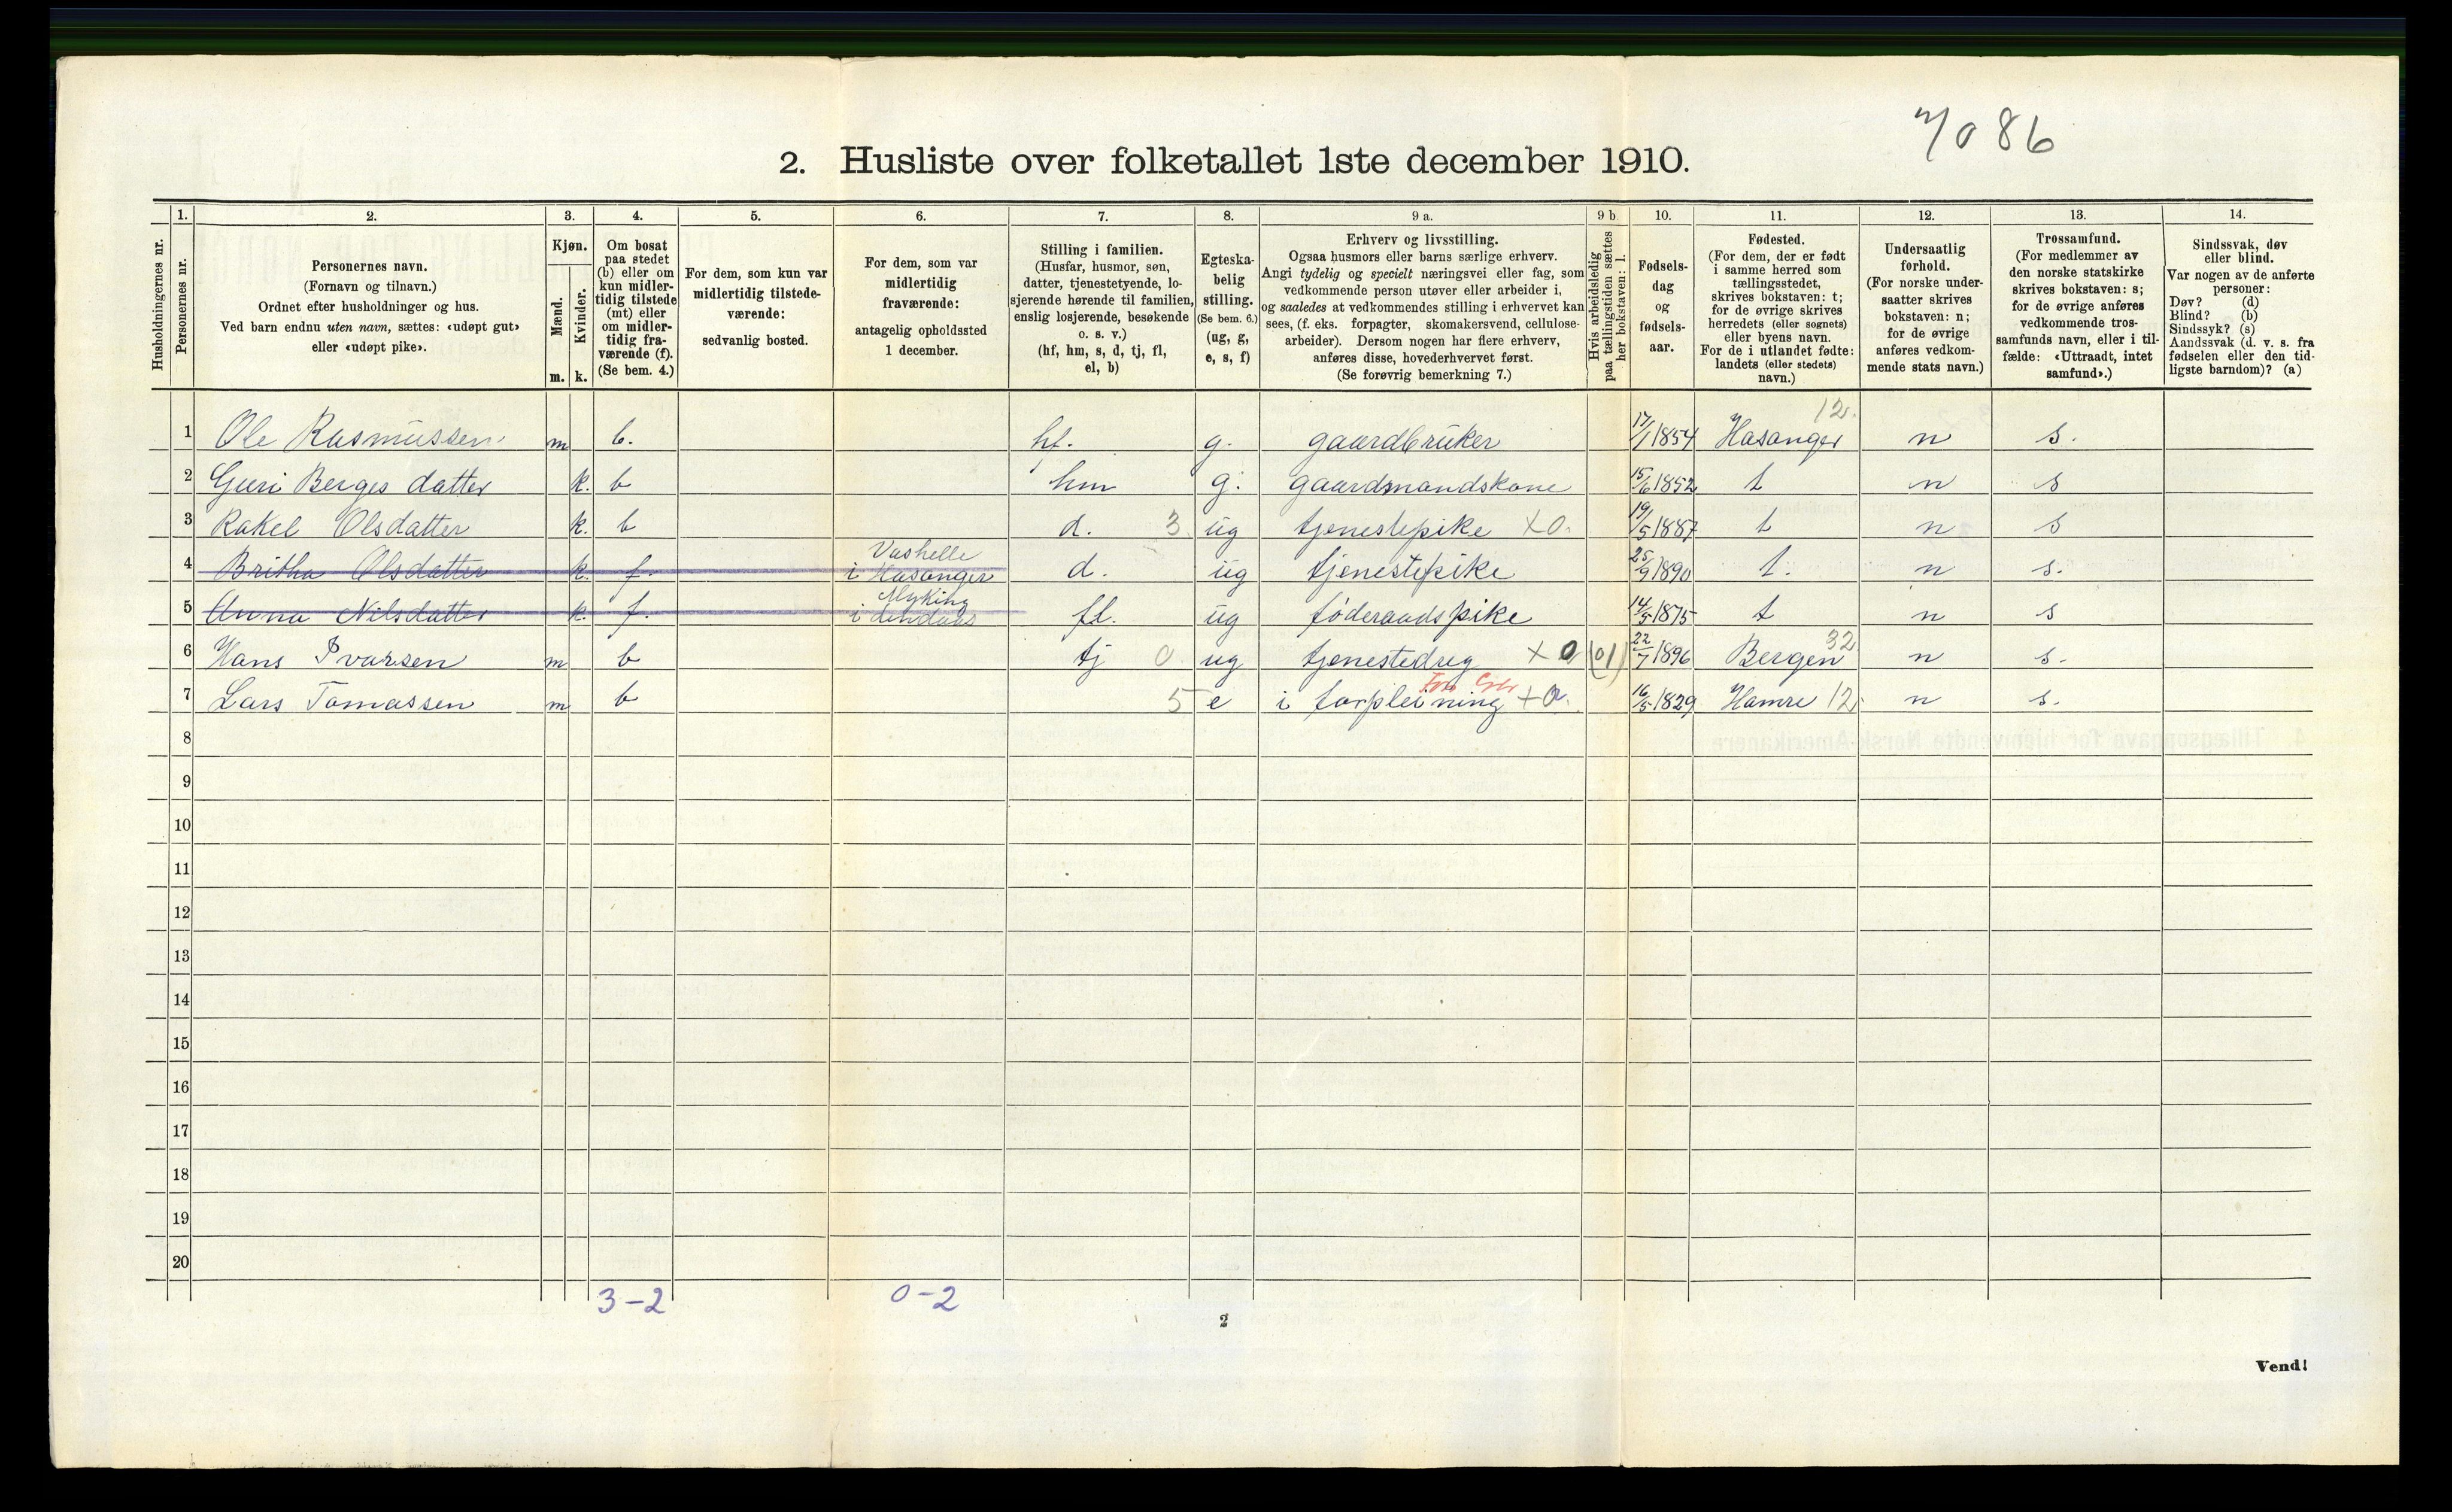 7086
2. Husliste over folketallet 1ste december 1910.
Husholdningernes nr.
1. Personernes nr.
2. Personernes navn.
(Fornavn og tilnavn.)
Ordnet efter husholdninger og hus.
Ved barn endnu uten navn, sættes: «udøpt gut»
eller «udøpt pike».
3. Kjøn.
Mænd. Kvinder.
m. k.
4. Om bosat
paa stedet
(b) eller om
kun midler-
tidig tilstede
(mt) eller
om midler-
tidig fra-
værende (f).
(Se bem. 4.)
5. For dem, som kun var
midlertidig tilstede-
værende:
sedvanlig bosted.
6. For dem, som var
midlertidig
fraværende:
antagelig opholdssted
1 december.
7. Stilling i familien.
(Husfar, husmor, søn,
datter, tjenestetyende, lo-
sjerende hørende til familien,
enslig losjerende, besøkende
o. s. v.)
(hf, hm, s, d, tj, fl,
el, b)
8. Egteska-
belig
stilling.
(Se bem. 6.)
(ug, g,
e, s, f)
9 a. Erhverv og livsstilling.
Ogsaa husmors eller barns særlige erhverv.
Angi tydelig og specielt næringsvei eller fag, som
vedkommende person utøver eller arbeider i,
og saaledes at vedkommendes stilling i erhvervet kan
sees, (f. eks. forpagter, skomakersvend, cellulose-
arbeider). Dersom nogen har flere erhverv,
anføres disse, hovederhvervet først.
(Se forøvrig bemerkning 7.)
9 b. Hvis arbeidsledig
paa tællingstiden sættes
her bokstaven: l.
10. Fødsels-
dag
og
fødsels-
aar.
11. Fødested.
(For dem, der er født
i samme herred som
tællingsstedet,
skrives bokstaven: t;
for de øvrige skrives
herredets (eller sognets)
eller byens navn.
For de i utlandet fødte:
landets (eller stedets)
navn.)
12. Undersaatlig
forhold.
(For norske under-
saatter skrives
bokstaven: n;
for de øvrige
anføres vedkom-
mende stats navn.)
13. Trossamfund.
(For medlemmer av
den norske statskirke
skrives bokstaven: s;
for de øvrige anføres
vedkommende tros-
samfunds navn, eller i til-
fælde: «Uttraadt, intet
samfund».)
14. Sindssvak, døv
eller blind.
Var nogen av de anførte
personer:
Døv? (d)
Blind? (b)
Sindssyk? (s)
Aandssvak (d. v. s. fra
fødselen eller den tid-
ligste barndom)? (a)
1 Ole Rasmussen m b. hf. g. gaardbruker 17/1 1854 Hasanger 12. n s.
2 Guri Berges datter k. b hm g. gaardmandskone 15/6 1852 t n s
3 Rakel Olsdatter k. b d. 3 ug tjenestepike X0. 19/5 1887 t n s
4 Britha Olsdatter k. f. i Hasanger d. ug tjenestepike 25/9 1890 t. n s.
5 Anna Nilsdatter k. f. Myking i fl. ug føderaadspike 14/5 1875 t n s
6 Hans Ivarsen m b tj 0 ug tjenestedreg X0 (01) 22/7 1896 Bergen 32 n s.
7 Lars Tomassen m b 5 e i forpleining +0. 16/5 1829 Hamre 12. n s.
8
9
10
11
12
13
14
15
16
17
18
19
20
3-2 0-2
2
Vend!